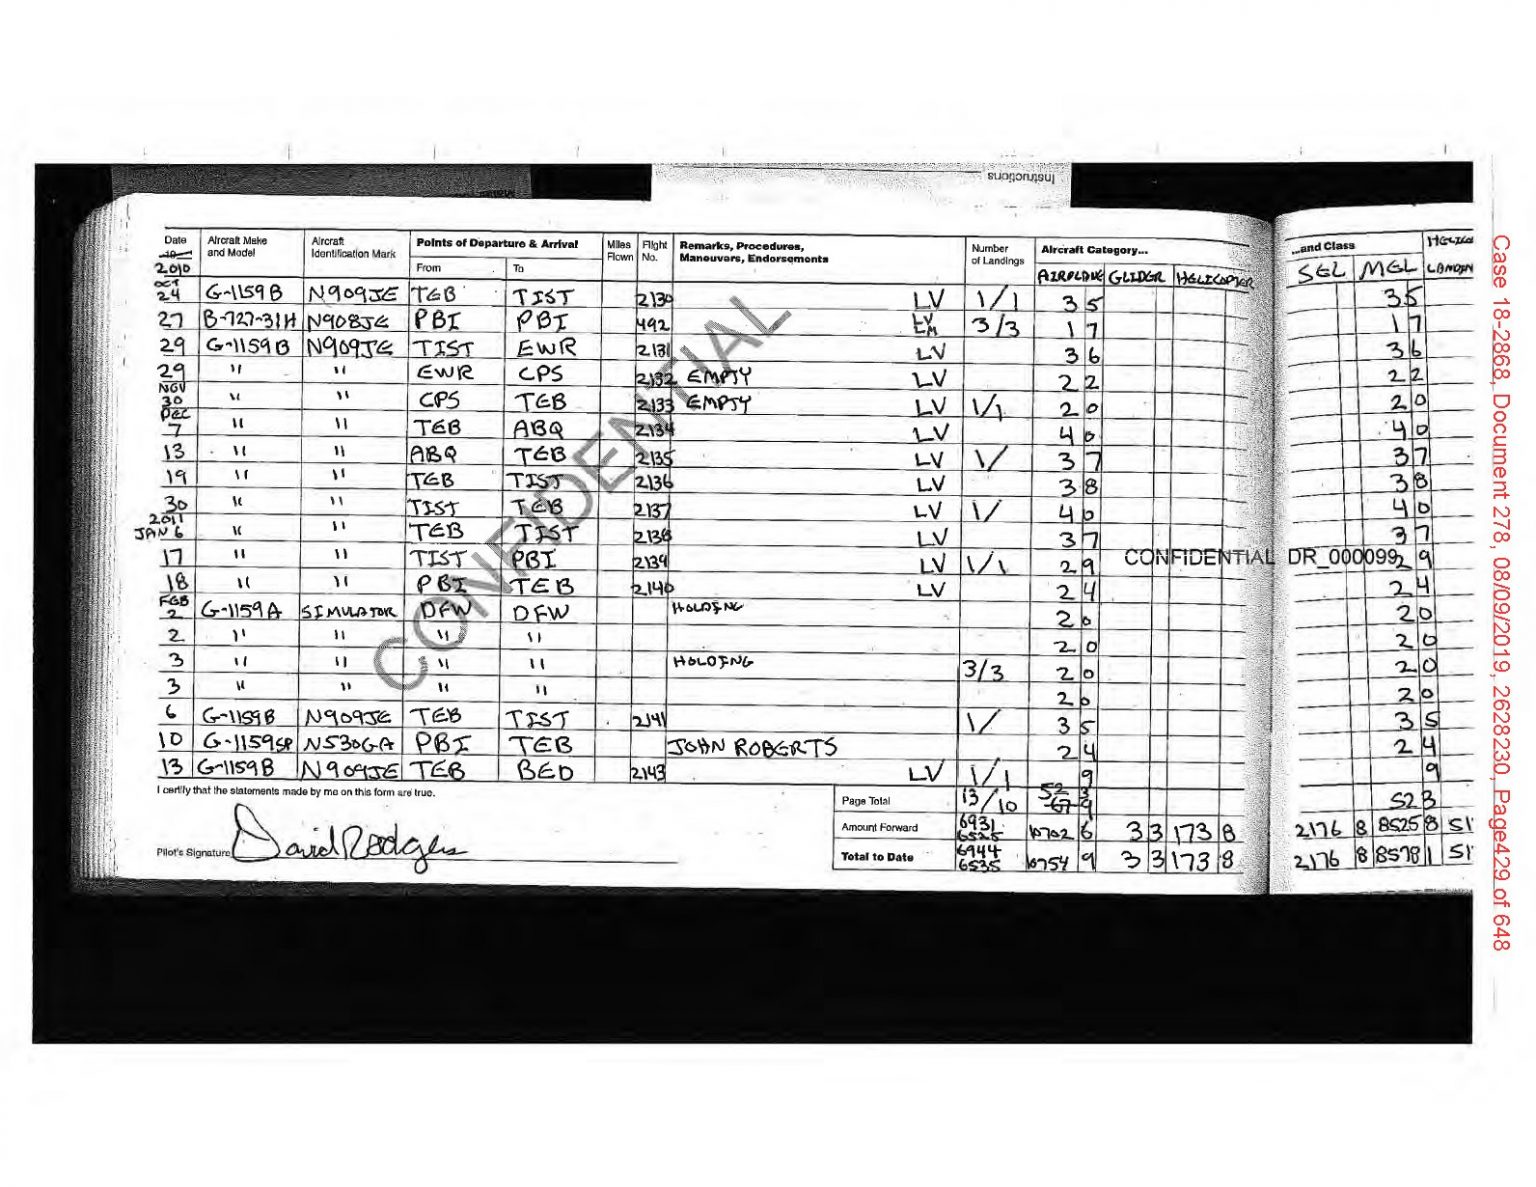 Instructions
Date Aircraft Make and Model Aircraft Identification Mark Points of Departure & Arrival Miles Flown Flight No. Remarks, Procedures, Maneuvers, Endorsements Number of Landings Aircraft Category... ...and Class
19 2010 From To AIRPLANE GLIDER HELICOPTER SEL MEL
OCT 24 G-1159B N909JE TEB TIST 2130 LV 1/1 3 5 3 5
27 B-727-31H N908JE PBI PBI 492 LV LM 3/3 1 7 1 7
29 G-1159B N909JE TIST EWR 2131 LV 3 6 3 6
29 " " EWR CPS 2132 EMPTY LV 2 2 2 2
NOV 30 " " CPS TEB 2133 EMPTY LV 1/1 2 0 2 0
DEC 7 " " TEB ABQ 2134 LV 4 0 4 0
13 " " ABQ TEB 2135 LV 1/ 3 7 3 7
19 " " TEB TIST 2136 LV 3 8 3 8
30 " " TIST TEB 2137 LV 1/ 4 0 4 0
2011 JAN 6 " " TEB TIST 2138 LV 3 7 3 7
17 " " TIST PBI 2139 LV 1/1 2 9 2 9
18 " " PBI TEB 2140 LV 2 4 2 4
FEB 2 G-1159A SIMULATOR DFW DFW HOLDING 2 0 2 0
2 " " " " 2 0 2 0
3 " " " " HOLDING 3/3 2 0 2 0
3 " " " " 2 0 2 0
6 G-1159B N909JE TEB TIST 2141 1/ 3 5 3 5
10 G-1159SP N530GA PBI TEB JOHN ROBERTS 2 4 2 4
13 G-1159B N909JE TEB BED 2143 LV 1/1 9 9
I certify that the statements made by me on this form are true.
Page Total 13/10 52 3 52 3
Amount Forward 6931 6525 10702 6 3 3 173 8 2176 8 8525 8 51
Pilot's Signature David Rodgers Total to Date 6944 6535 10754 9 3 3 173 8 2176 8 8578 1 51
CONFIDENTIAL
CONFIDENTIAL DR_000099
Case 18-2868, Document 278, 08/09/2019, 2628230, Page429 of 648